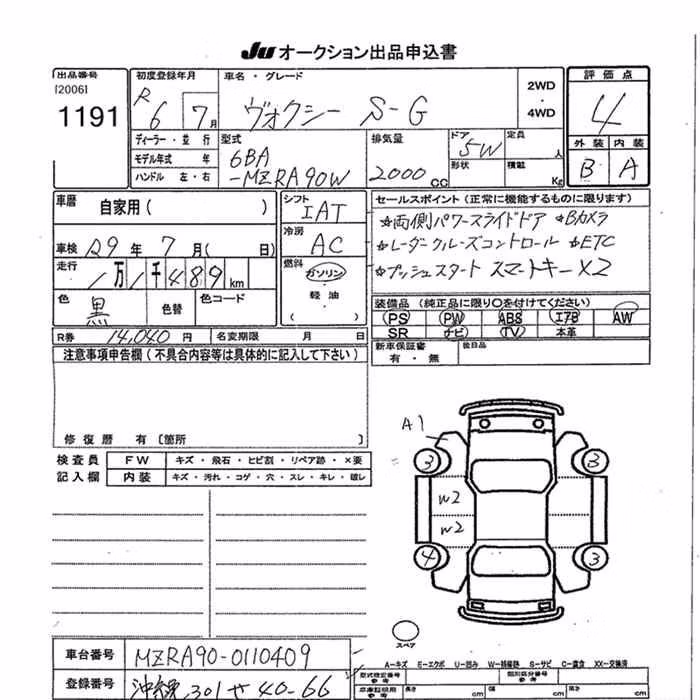 JU オークション出品申込書
出品番号
[2006]
1191
初度登録年月
R 6 7月
車名・グレード
ヴォクシー S-G
2WD
・
4WD
評価点
4
外装 内装
B A
ディーラー・並行
モデル年式 年
ハンドル 左・右
型式
6BA
-MZRA90W
排気量
2000 CC
ドア 5W
形状
定員 人
積載 Kg
車歴 自家用( )
車検 R9年 7月( 日)
走行 1万1千489km
色 黒 色替 色コード
シフト
IAT
冷房
AC
燃料
ガソリン
・
軽油
( )
セールスポイント(正常に機能するものに限ります)
☆両側パワースライドドア ☆Bカメラ
☆レーダークルーズコントロール ☆ETC
☆プッシュスタート スマートキー×2
装備品(純正品に限り○を付けてください)
PS PW ABS エアB AW
SR ナビ TV 本革
新車保証書 後日品
有・無
R券 14,040円 名変期限 月 日
注意事項申告欄(不具合内容等は具体的に記入して下さい)
修復歴 有〔箇所 〕
検査員 FW キズ・飛石・ヒビ割・リペア跡・×要
記入欄 内装 キズ・汚れ・コゲ・穴・スレ・キレ・破レ
A1
3 3
W2
W2
4 3
スペア
車台番号 MZRA90-0110409
A-キズ E-エクボ U-凹み W-補修跡 S-サビ C-腐食 XX-交換済
登録番号 沖縄301せ40-66
型式指定番号
参考
類別区分番号
参考
車庫証明用
参考
長さ cm
幅 cm
高さ cm